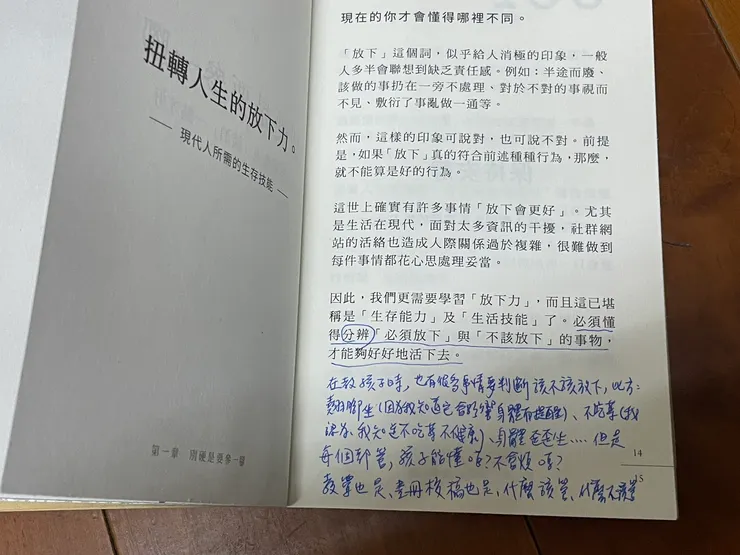 扭轉人生的放下力。
── 現代人所需的生存技能 ──
第一章 別硬是要參一腳
現在的你才會懂得哪裡不同。
「放下」這個詞，似乎給人消極的印象，一般
人多半會聯想到缺乏責任感。例如：半途而廢、
該做的事扔在一旁不處理、對於不對的事視而
不見、敷衍了事亂做一通等。
然而，這樣的印象可說對，也可說不對。前提
是，如果「放下」真的符合前述種種行為，那麼，
就不能算是好的行為。
這世上確實有許多事情「放下會更好」。尤其
是生活在現代，面對太多資訊的干擾，社群網
站的活絡也造成人際關係過於複雜，很難做到
每件事情都花心思處理妥當。
因此，我們更需要學習「放下力」，而且這已堪
稱是「生存能力」及「生活技能」了。必須懂
得分辨「必須放下」與「不該放下」的事物，
才能夠好好地活下去。
在教孩子時，也有很多事情要判斷該不該放下，比方：
翹腳坐(因為我知道它會影響身體有提醒)、不吃菜(我
認為、我知道不吃菜不健康)、身體歪歪坐…. 但是
每個都管，孩子能懂嗎？不會煩嗎？
教學也是、畫冊校稿也是，什麼該管、什麼不該管
14
15